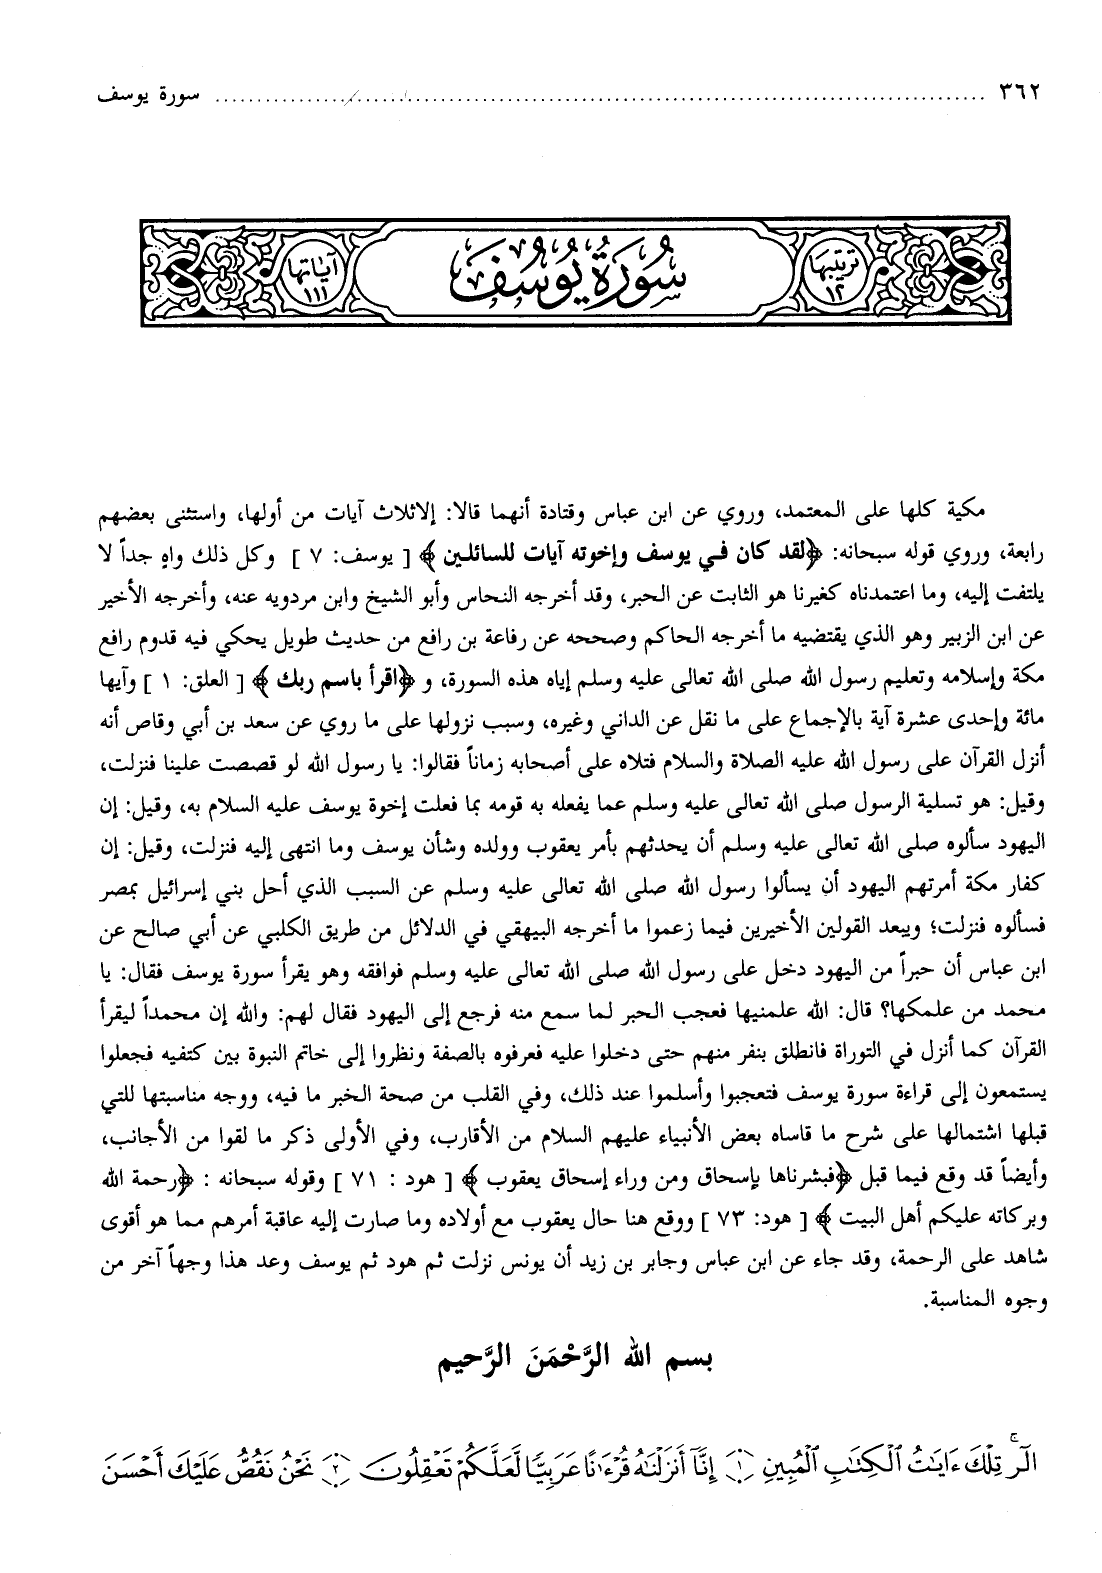 ٣٦٢ ........................................................................ سورة يوسف
ترتيبها ١٢ سُورَةُ يُوسُف آياتها ١١١
مكية كلها على المعتمد، وروي عن ابن عباس وقتادة أنهما قالا: إلاثلاث آيات من أولها، واستثنى بعضهم
رابعة، وروي قوله سبحانه: ﴿لقد كان في يوسف وإخوته آيات للسائلين﴾ [ يوسف: ٧ ] وكل ذلك واهٍ جداً لا
يلتفت إليه، وما اعتمدناه كغيرنا هو الثابت عن الحبر، وقد أخرجه النحاس وأبو الشيخ وابن مردويه عنه، وأخرجه الأخير
عن ابن الزبير وهو الذي يقتضيه ما أخرجه الحاكم وصححه عن رفاعة بن رافع من حديث طويل يحكي فيه قدوم رافع
مكة وإسلامه وتعليم رسول الله صلى الله تعالى عليه وسلم إياه هذه السورة، و ﴿اقرأ باسم ربك﴾ [ العلق: ١ ] وآيها
مائة وإحدى عشرة آية بالإجماع على ما نقل عن الداني وغيره، وسبب نزولها على ما روي عن سعد بن أبي وقاص أنه
أنزل القرآن على رسول الله عليه الصلاة والسلام فتلاه على أصحابه زماناً فقالوا: يا رسول الله لو قصصت علينا فنزلت،
وقيل: هو تسلية الرسول صلى الله تعالى عليه وسلم عما يفعله به قومه بما فعلت إخوة يوسف عليه السلام به، وقيل: إن
اليهود سألوه صلى الله تعالى عليه وسلم أن يحدثهم بأمر يعقوب وولده وشأن يوسف وما انتهى إليه فنزلت، وقيل: إن
كفار مكة أمرتهم اليهود أن يسألوا رسول الله صلى الله تعالى عليه وسلم عن السبب الذي أحل بني إسرائيل بمصر
فسألوه فنزلت؛ ويبعد القولين الأخيرين فيما زعموا ما أخرجه البيهقي في الدلائل من طريق الكلبي عن أبي صالح عن
ابن عباس أن حبراً من اليهود دخل على رسول الله صلى الله تعالى عليه وسلم فوافقه وهو يقرأ سورة يوسف فقال: يا
محمد من علمكها؟ قال: الله علمنيها فعجب الحبر لما سمع منه فرجع إلى اليهود فقال لهم: والله إن محمداً ليقرأ
القرآن كما أنزل في التوراة فانطلق بنفر منهم حتى دخلوا عليه فعرفوه بالصفة ونظروا إلى خاتم النبوة بين كتفيه فجعلوا
يستمعون إلى قراءة سورة يوسف فتعجبوا وأسلموا عند ذلك، وفي القلب من صحة الخبر ما فيه، ووجه مناسبتها للتي
قبلها اشتمالها على شرح ما قاساه بعض الأنبياء عليهم السلام من الأقارب، وفي الأولى ذكر ما لقوا من الأجانب،
وأيضاً قد وقع فيما قبل ﴿فبشرناها بإسحاق ومن وراء إسحاق يعقوب﴾ [ هود : ٧١ ] وقوله سبحانه : ﴿رحمة الله
وبركاته عليكم أهل البيت﴾ [ هود: ٧٣ ] ووقع هنا حال يعقوب مع أولاده وما صارت إليه عاقبة أمرهم مما هو أقوى
شاهد على الرحمة، وقد جاء عن ابن عباس وجابر بن زيد أن يونس نزلت ثم هود ثم يوسف وعد هذا وجهاً آخر من
وجوه المناسبة.
بسم الله الرَّحْمَنَ الرَّحيم
الٓرۚ تِلْكَ ءَايَٰتُ ٱلْكِتَٰبِ ٱلْمُبِينِ ﴿١﴾ إِنَّآ أَنزَلْنَٰهُ قُرْءَٰنًا عَرَبِيًّا لَّعَلَّكُمْ تَعْقِلُونَ ﴿٢﴾ نَحْنُ نَقُصُّ عَلَيْكَ أَحْسَنَ